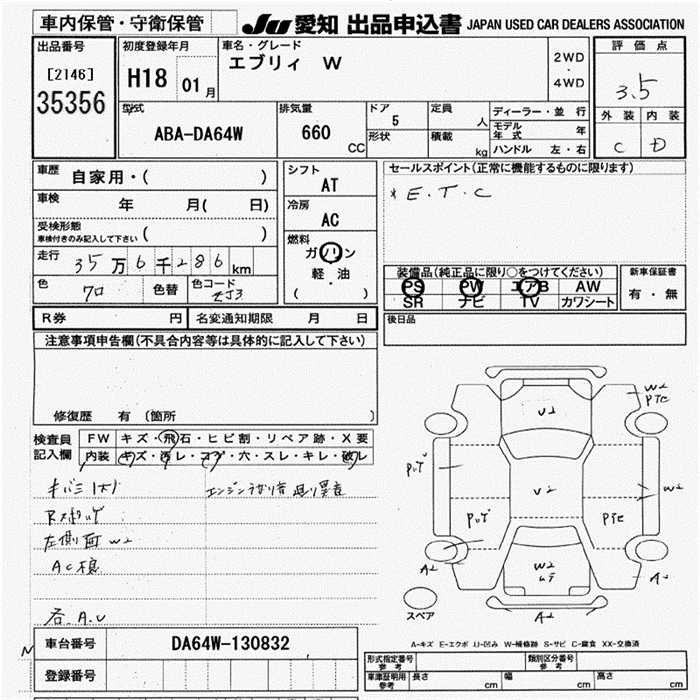 車内保管・守衛保管
JU 愛知 出品申込書 JAPAN USED CAR DEALERS ASSOCIATION
出品番号
[2146]
35356
初度登録年月
H18 01月
車名・グレード
エブリィ W
2WD
・
4WD
評価点
3.5
外装 内装
C D
型式
ABA-DA64W
排気量
660
CC
ドア
5
形状
定員
人
積載
kg
ディーラー・並行
モデル年式 年
ハンドル 左・右
車歴 自家用・( )
車検 年 月( 日)
受検形態
車検付きのみ記入して下さい ( )
走行 35万6千286km
色 クロ 色替 色コード ZJ3
シフト
AT
冷房
AC
燃料
ガソリン
軽・油
( )
セールスポイント(正常に機能するものに限ります)
* E.T.C
装備品(純正品に限り○をつけてください)
PS PW エアB AW
SR ナビ TV カワシート
新車保証書
有・無
R券 円 名変通知期限 月 日
後日品
注意事項申告欄(不具合内容等は具体的に記入して下さい)
修復歴 有 〔箇所 〕
検査員
記入欄
FW キズ・飛石・ヒビ割・リペア跡・X要
内装 キズ・汚レ・コゲ・穴・スレ・キレ・破レ
左側面 W2
各 A.U
W2
PTE
U2
W2
U2
PTE
W2
A2
A2
A2
スペア
A-キズ E-エクボ U-凹み W-補修跡 S-サビ C-腐食 XX-交換済
車台番号 DA64W-130832
登録番号
形式指定番号
参考
類別区分番号
参考
車庫証明用
参考
長さ cm 幅 cm 高さ cm